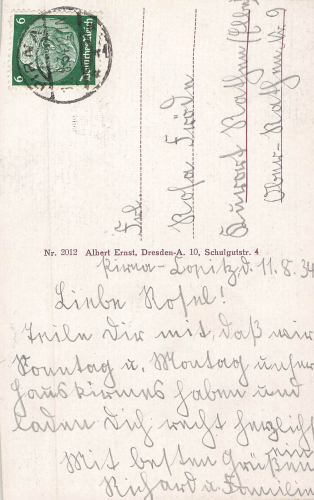 6 Deutsches Reich 6
PIRNA
Frl.
Rosa Fröde
Kurort Rathen (Elbe)
Ober-Rathen Nr. 9
Nr. 2012 Albert Ernst, Dresden-A. 10, Schulgutstr. 4
Pirna-Copitz, d. 11.8.34
Liebe Rosel!
Teile Dir mit, daß wir
Sonntag u. Montag unser
Hauskirmes haben und
laden Dich recht herzlich
ein
Mit besten Grüßen
Richard u. Familie